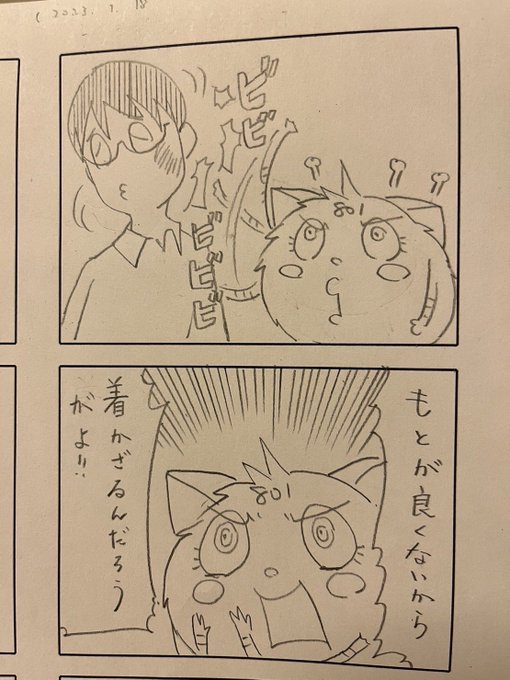 (2023.1.18
ビビビビビ
801
もとが良くないから
着かざるんだろう
がよ!!
801